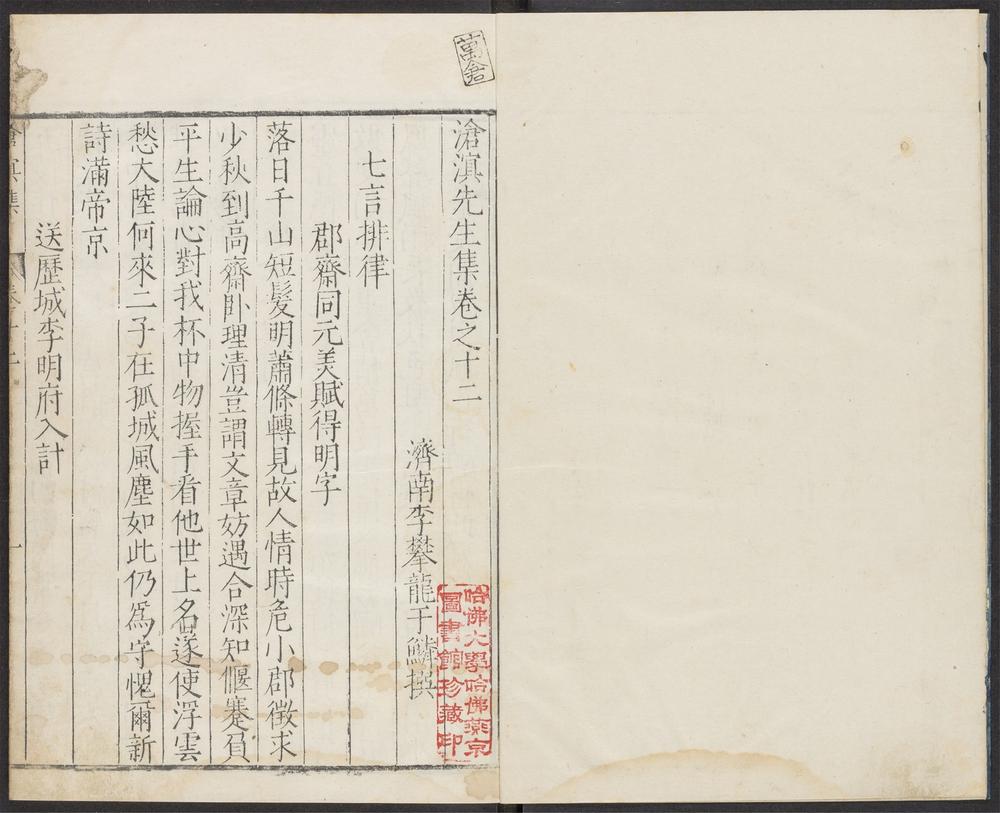 滄溟先生集卷之十二
濟南李攀龍于鱗撰
七言排律
郡齋同元美賦得明字
落日千山短髮明蕭條轉見故人情時危小郡徵求
少秋到高齋卧理清豈謂文章妨遇合深知偃蹇負
平生論心對我杯中物握手看他世上名遂使浮雲
愁大陸何來二子在孤城風塵如此仍爲守愧爾新
詩滿帝京
送歷城李明府入計
滄溟集
卷十二
一
哈佛大學哈佛燕京
圖書館珍藏印